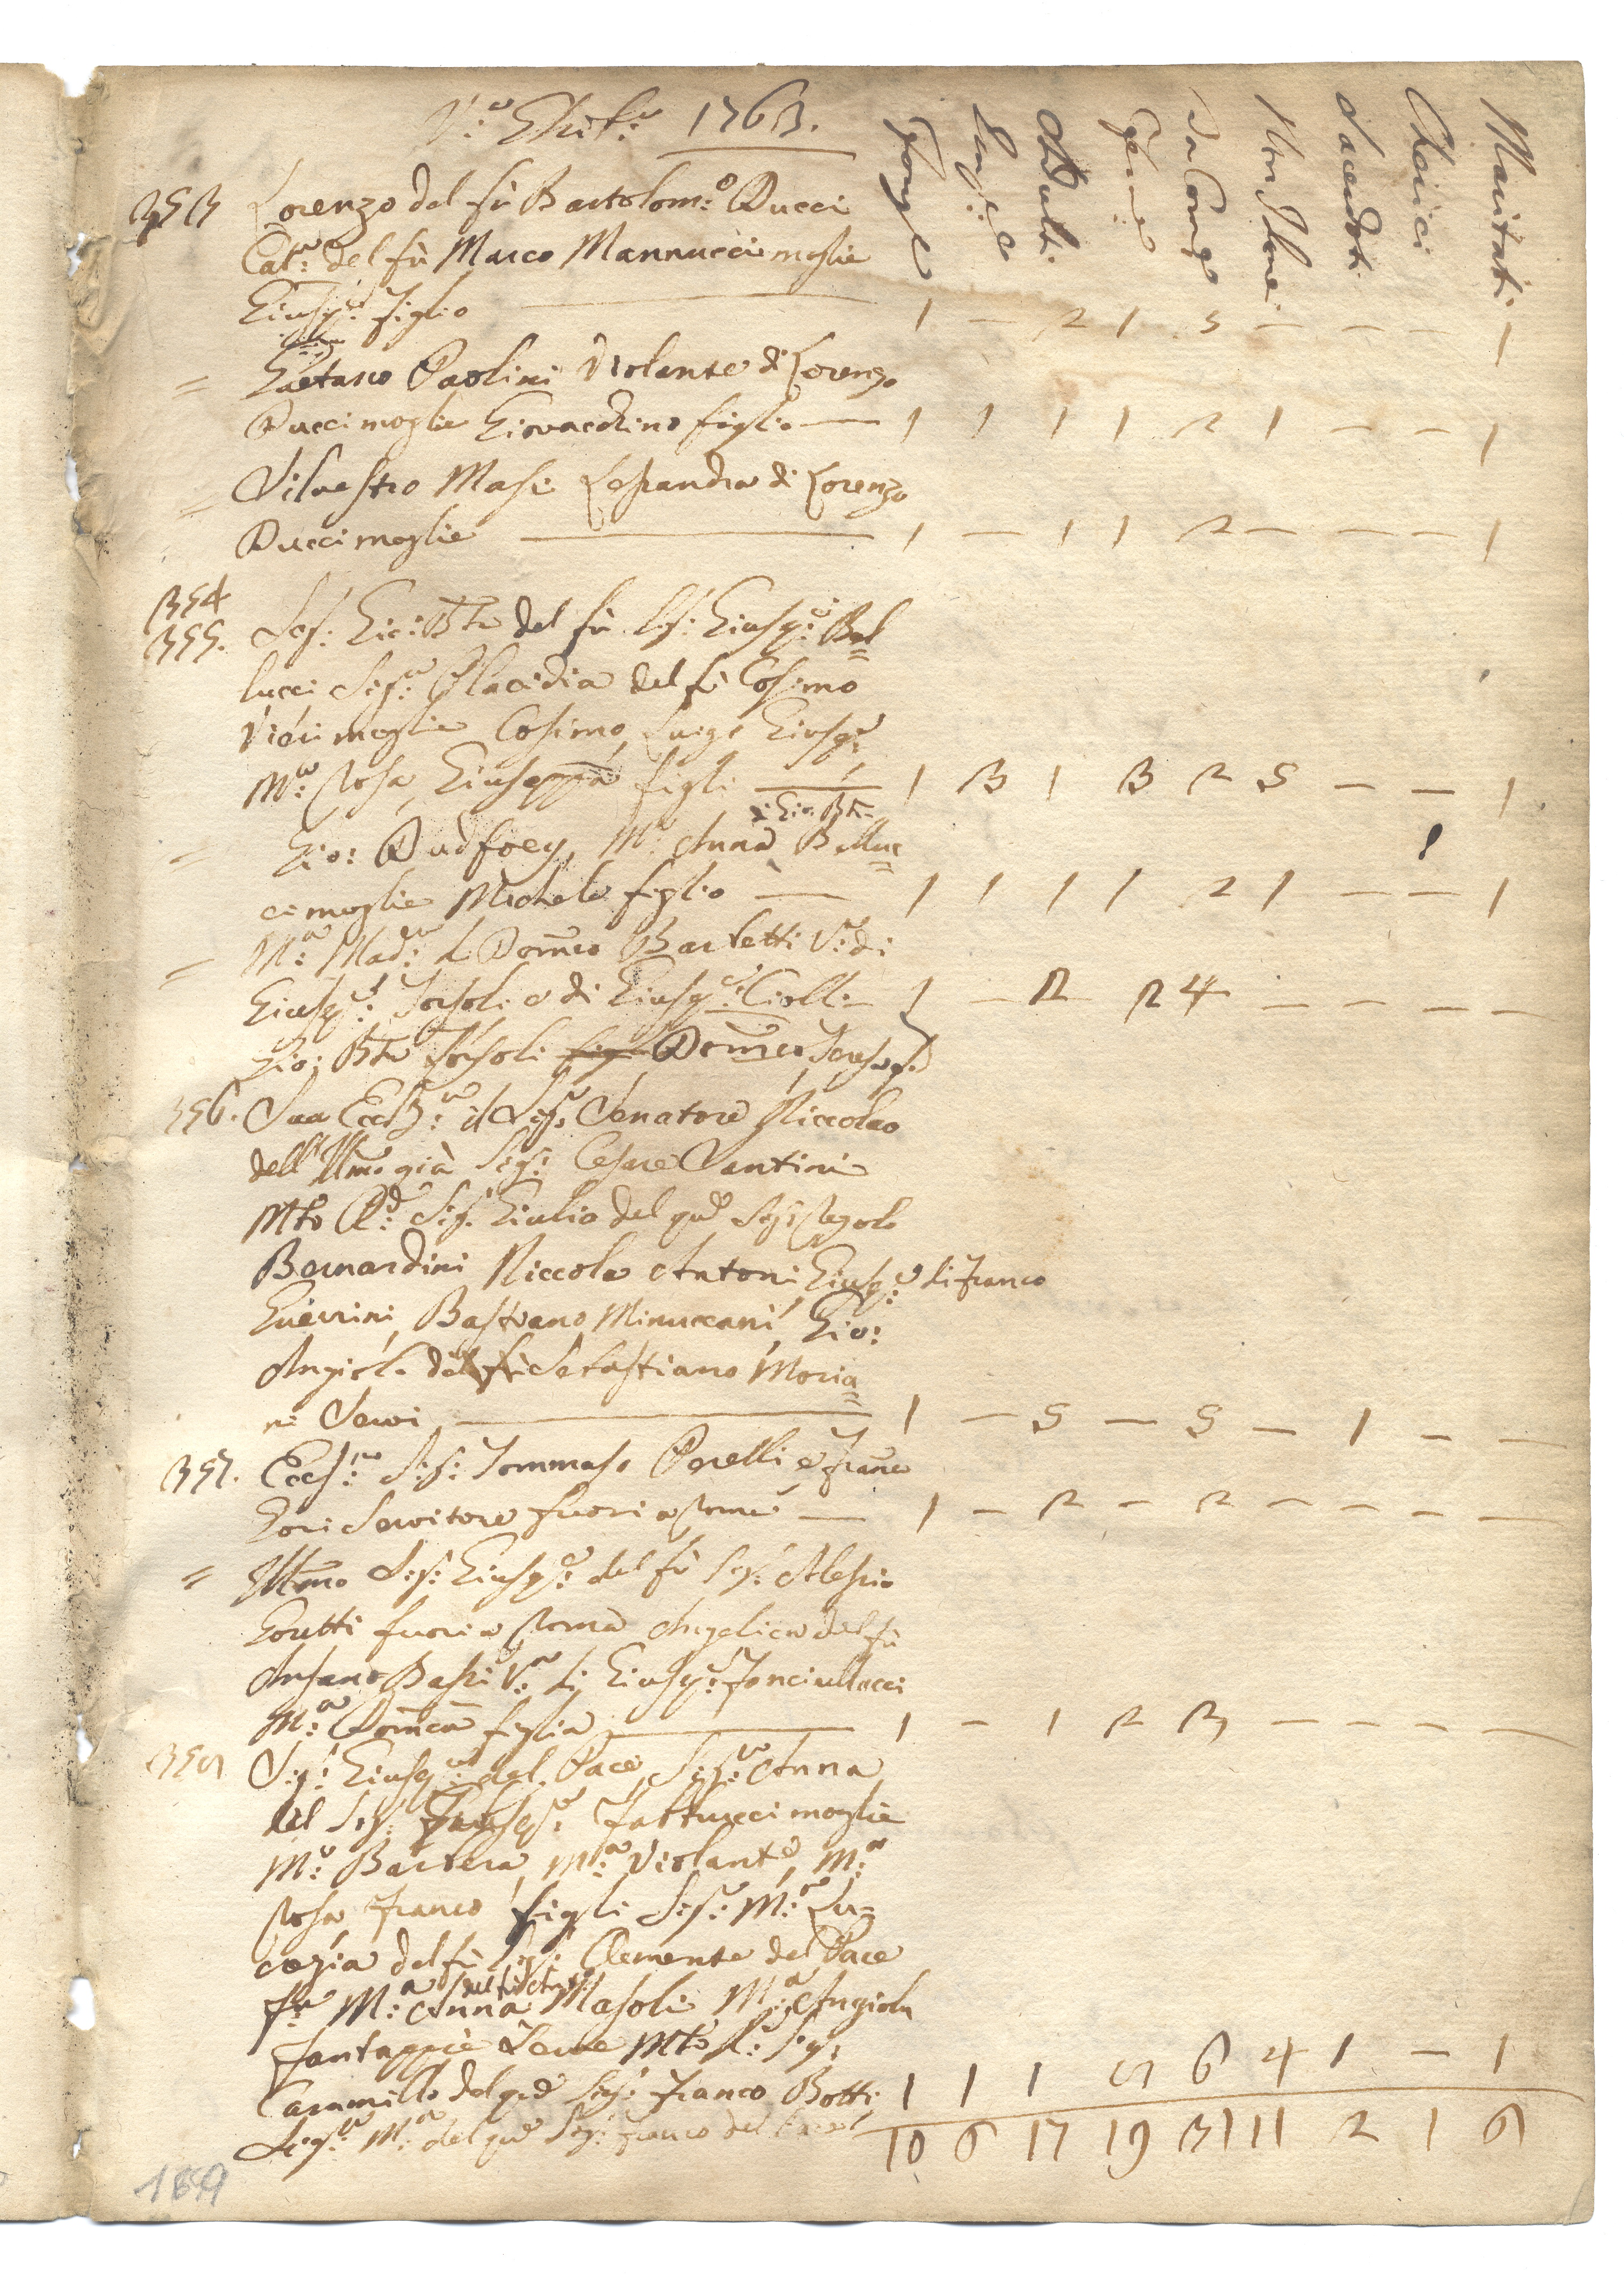 1763.
Famigl Maschi Adulti Femine Da Comu Non Comu Sacerdoti Cherici Maritati
353 Lorenzo del fù Bartolom:o Ducci
Cat:a del fù Marco Mannucci moglie
Giusp:e figlio — 1 — 2 1 3 — — — 1
= Gaetano Paolini Violante di Lorenzo
Ducci moglie Giovacchino figlio — 1 1 1 1 2 1 — — 1
= Silvestro Masi Lessandra di Lorenzo
Ducci moglie — 1 — 1 1 2 — — — 1
354
355. Sig: Gio: Bta del fù Sig: Giusp:e Bel=
lucci Sig:a Placidia del fù Cosimo
Vicii moglie Cosimo, Luigi Giusp:e
M:a Rosa, Giuseppa figli — 1 3 1 3 2 5 — — 1
= Gio: Dudfoey, M:a Anna di Gio: Bta Belluc=
ci moglie Michele figlio — 1 1 1 1 2 1 — — 1
= M:a Mad:a di Dom:co Barletti V:a di
Giusp:e Tofsoli e di Giusp:e Ciolli 1 — 2 2 4 — — — —
Gio: Bta Dom:co
356. Sua Ecc:a il Sig:e Senatore Niccolao
dell' Illmo già Sig: Cesare Santini
Mto R:do Sig: Giulio del qd Sig:
Bernardini Niccola Antoni, Giusp:e di Franco
Guerrini, Bastiano Minuccani, Gio:
Angiolo del fù Sebastiano Moria=
ni Servi — 1 — 5 — 5 — 1 — —
357. Ecc:mo Sig: Tommaso Perelli e Franc:o
Gori Servitore fuori a Roma — 1 — 2 — 2 — — — —
= Illmo Sig: Giusp:e del fù Sig: Alessio
fuori a Roma Angelica del fù
Ansano Bassi V:a di Giusp:e Fonciullacci
M:a Dom:ca figlia — 1 — 1 2 3 — — — —
Sig: Giusp:e del Pace, Sig:a Anna
del Sig: Giusp:e Fattucci moglie
M:a Barbera, M:a Violante, M:a
Rosa Franco figli Sig:a M:a Lu=
crezia del fù Sig: Clemente del Pace
M:a Anna Masoli M:a Angiola
Fantappiè Serve Mto R:do Sig:
Cammillo del qd Sig: Franco Botti, 1 1 1 5 6 4 1 — 1
Sig:a M:a del qd Sig: Franco del
10 6 17 19 31 11 2 1 6
189